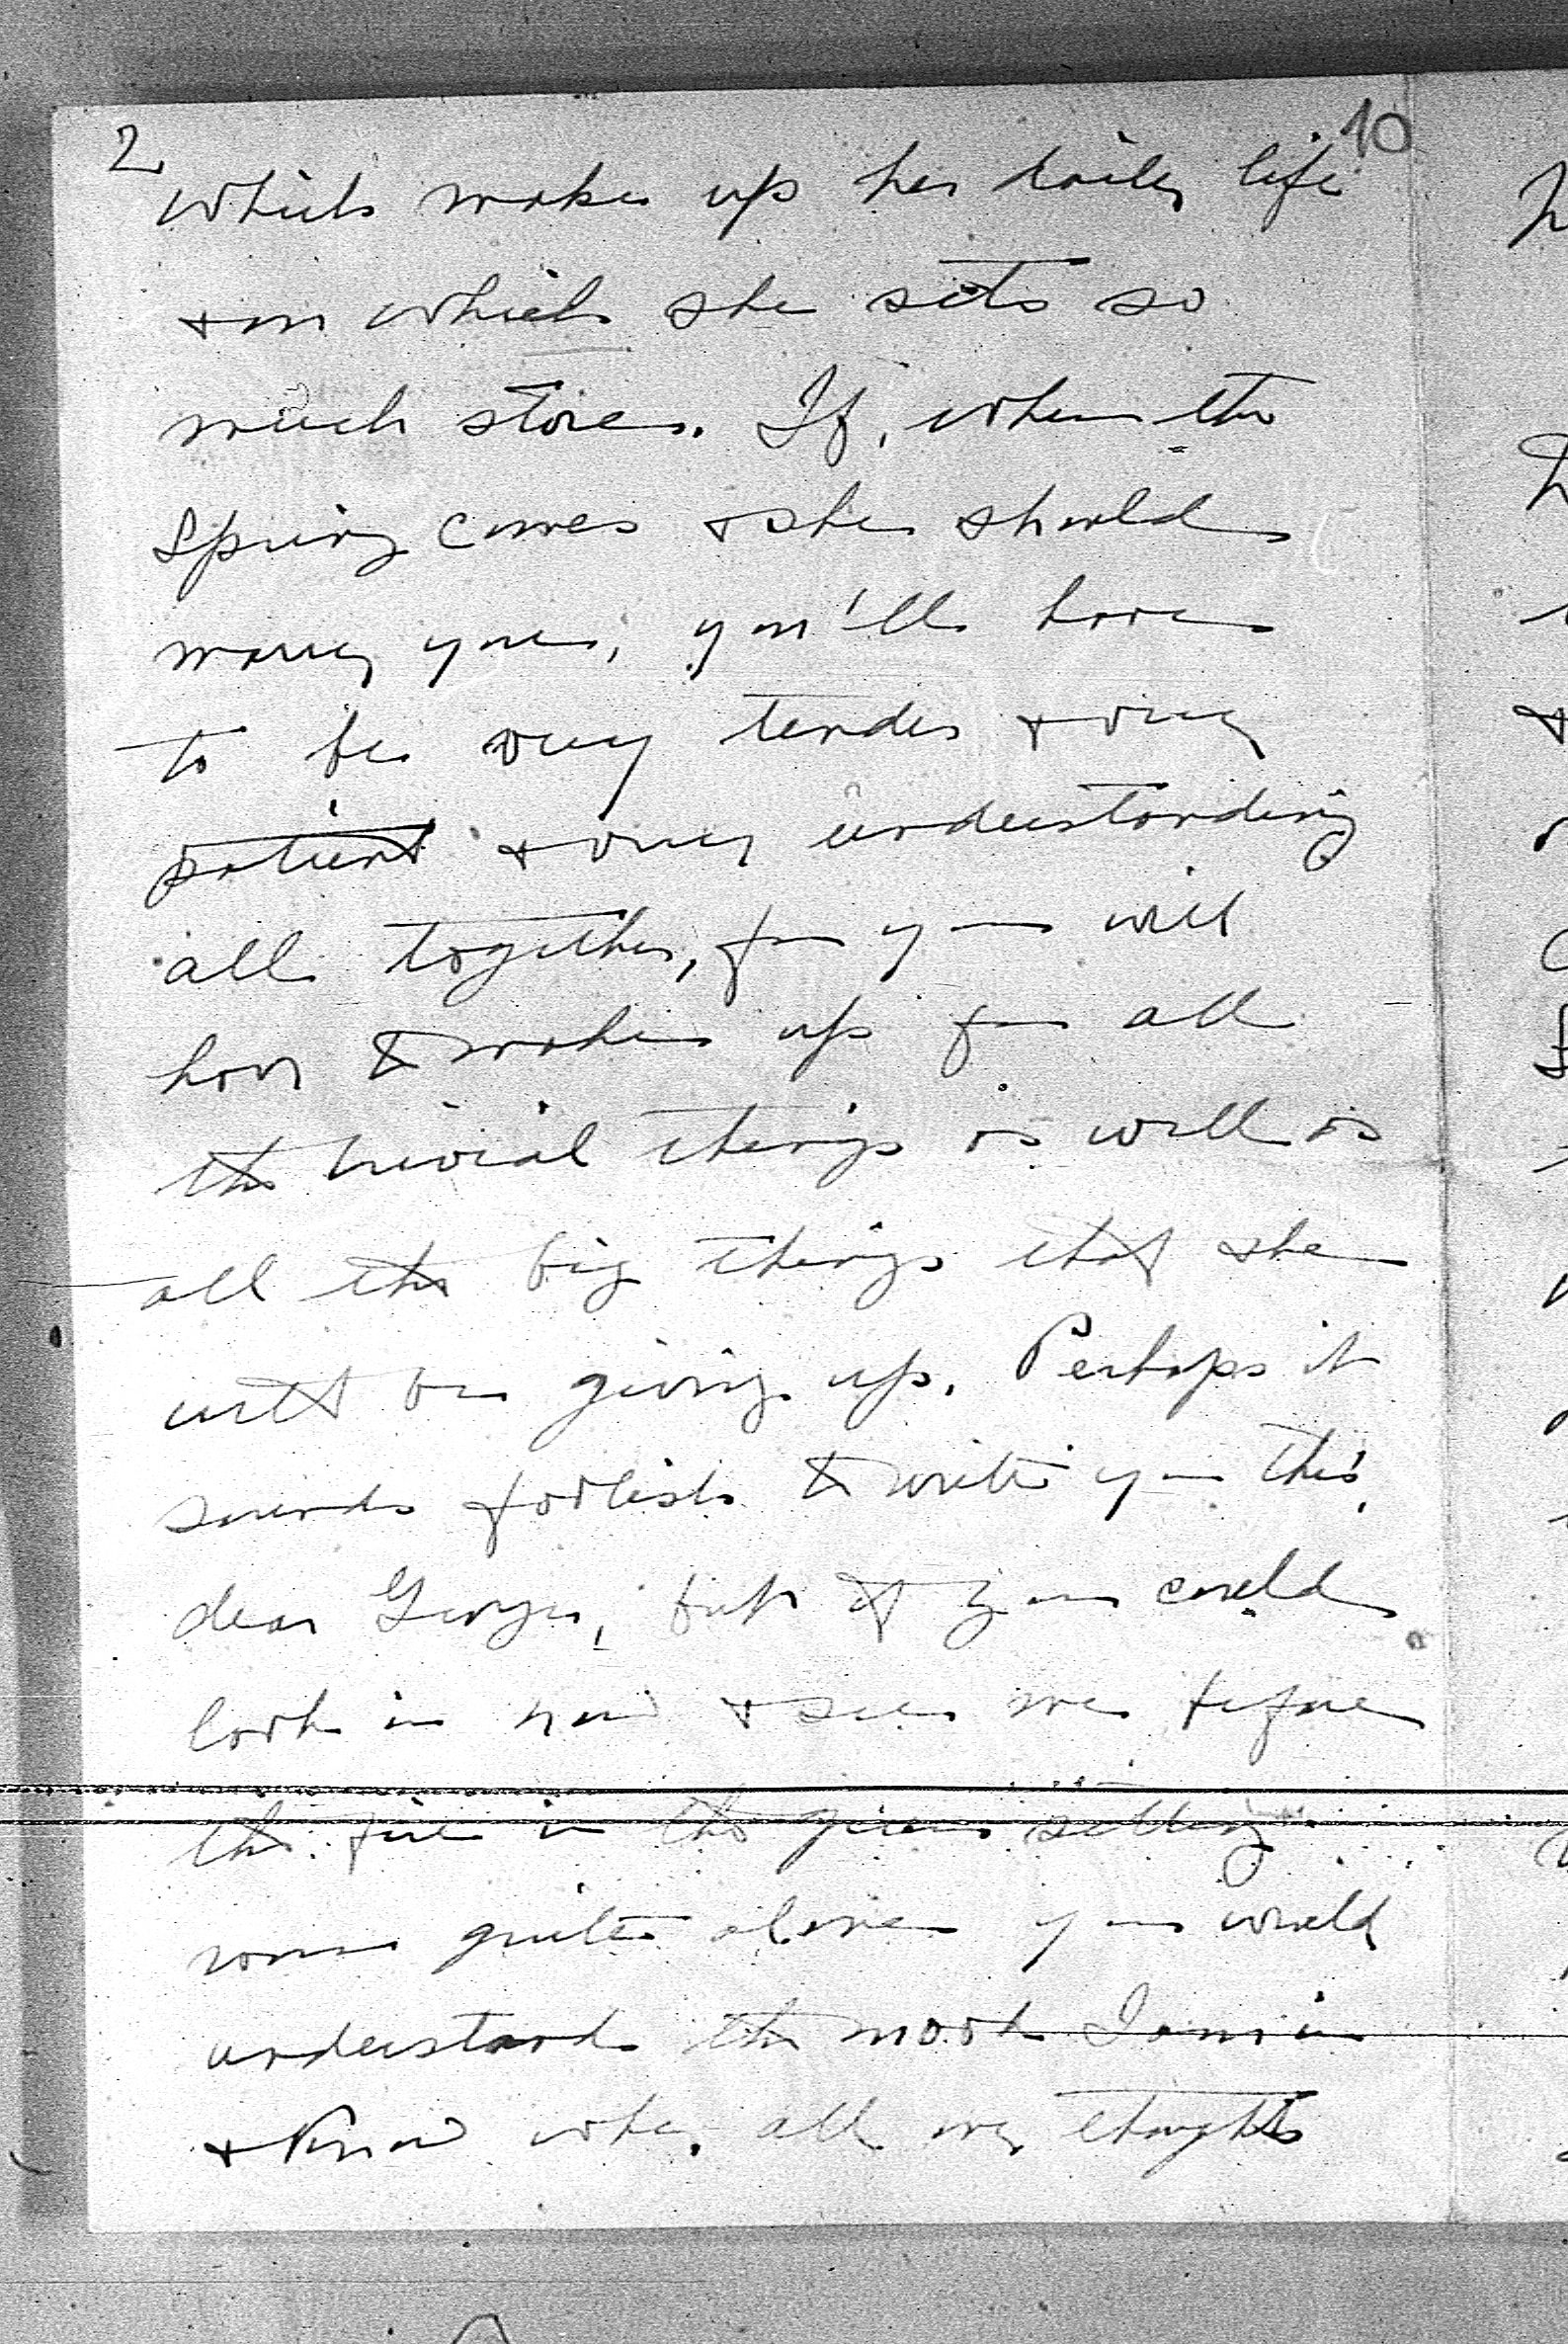 2
10
which make up her daily life
& on which she sets so
much store. If, when the
Spring comes & she should
marry you, you'll have
to be very tender & very
patient & very understanding
all together, for you will
have to make up for all
the trivial things as well as
all the big things that she
will be giving up. Perhaps it
sounds foolish to write you this,
dear George, but if you could
look in now & see me before
the fire in the green setting
room quite alone you would
understand the mood I am in
& know why all my thoughts